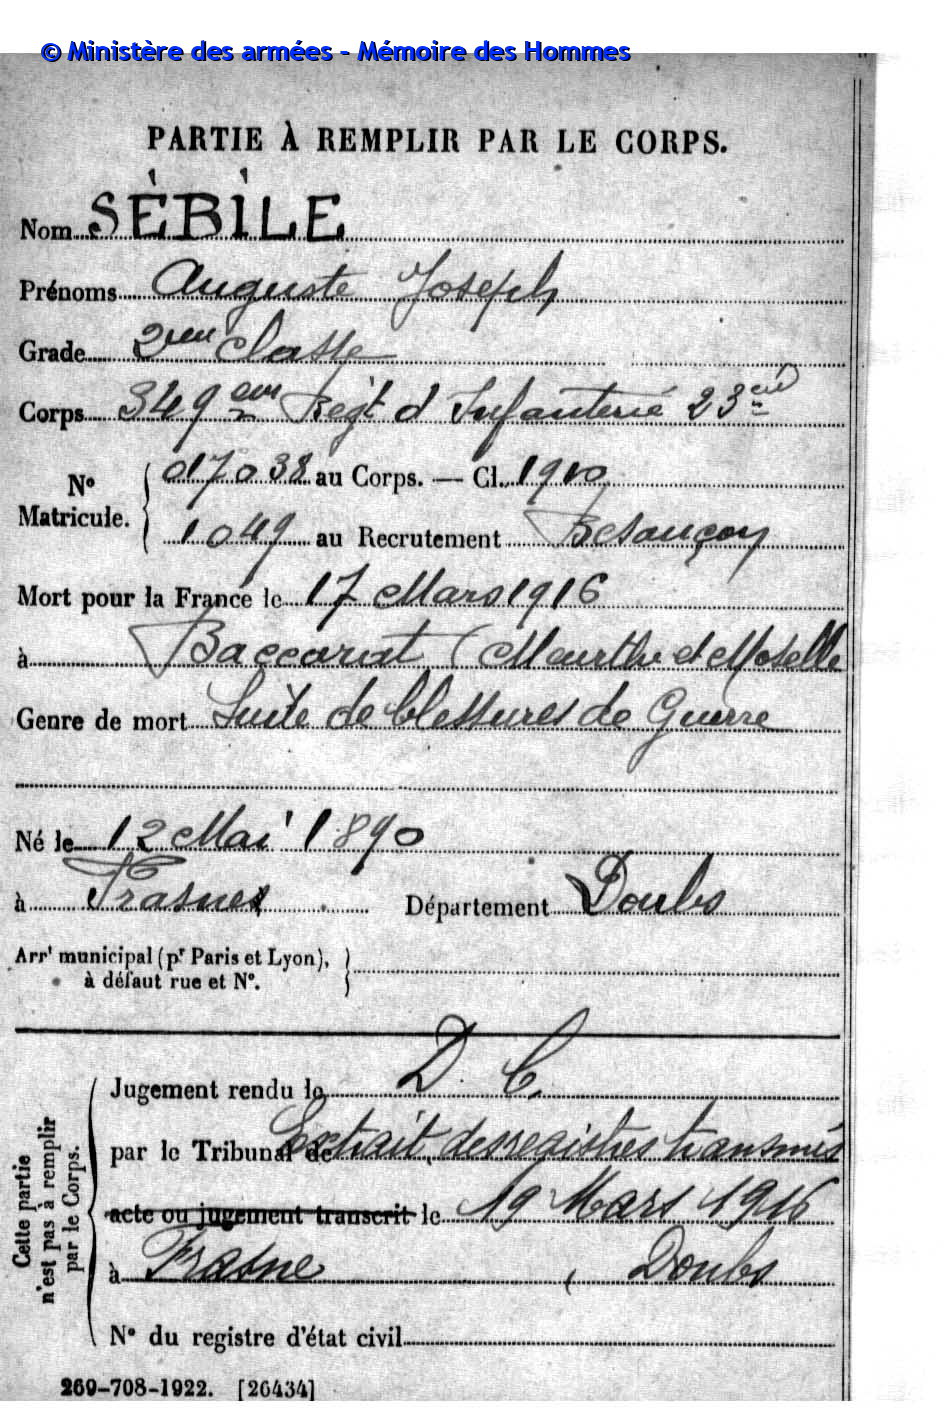 © Ministère des armées - Mémoire des Hommes
PARTIE À REMPLIR PAR LE CORPS.
Nom SÈBÌLE
Prénoms Auguste Joseph
Grade 2eme classe
Corps 349eme Reg't d Infanterie 23cie
No Matricule. 017038 au Corps. — Cl. 1910
1049 au Recrutement Besançon
Mort pour la France le 17 Mars 1916
à Baccarat (Meurthe et Moselle
Genre de mort Suite de blessures de Guerre
Né le 12 Mai 1890
à Frasnes Département Doubs
Arrt municipal (pr Paris et Lyon),
à défaut rue et No.
Cette partie n'est pas à remplir par le Corps.
Jugement rendu le D. C.
par le Tribunal de Extrait des registres transmis
acte ou jugement transcrit le 19 Mars 1916
à Frasne ( Doubs
No du registre d'état civil
269-708-1922. [26434]